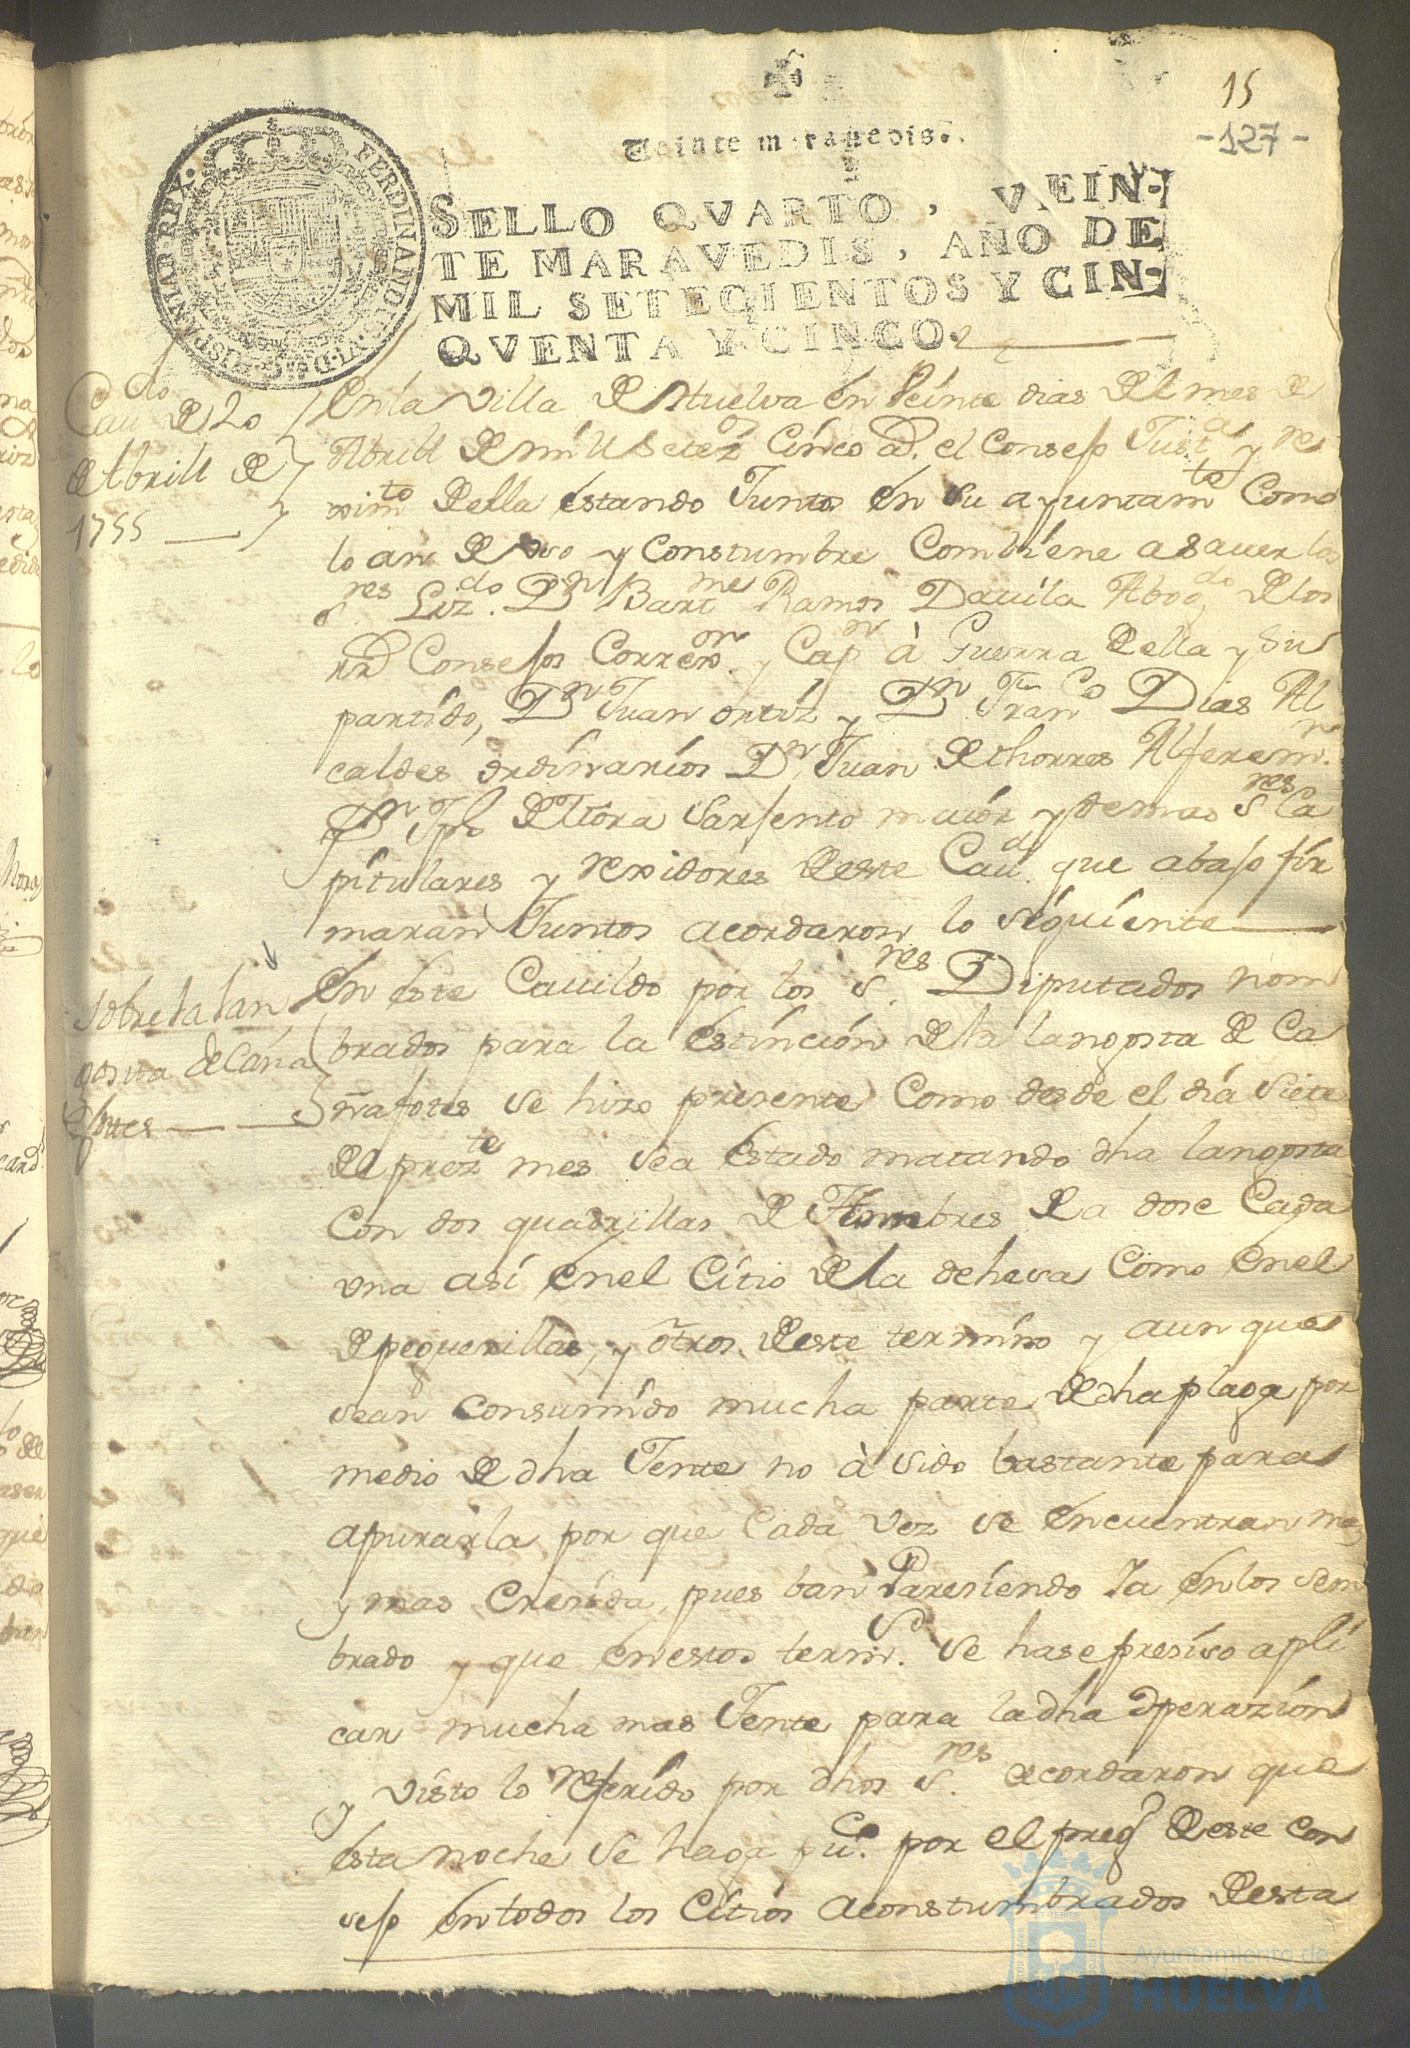 15
-127-
Veinte maravedis.
SELLO QVARTO, VEIN-
TE MARAVEDIS, AÑO DE
MIL SETECIENTOS Y CIN-
QVENTA Y CINCO.
FERDINANDUS VI D G HISPANIAR REX
Cau.do de 20
de Abrill de
1755
En la Villa de Huelva en Veinte dias del mes de
Abrill de mill setez.os Cinco a.d. el Consejo Just.a y re
xim.to della estando Juntos en su ayuntam.te Como
lo an de vso y Constumbre Combiene a sauer los
S.res Liz.do D.n Bart.me Ramos Dauila Abog.do de los
Consejos Correx.or y Cap.n à Guerra della y su
partido, D.n Juan ortiz y D.n Fran.co Dias Al
caldes ordinarios D.n Juan de thorres Alferem.r
D.n de Mora Sarjento maior y demas S.res Ca
pitulares y rexidores deste Cau.do que abajo fir
maran Juntos acordaron lo siguiente
Sobre la lan
gosta de Caña
fotes
En este Cauildo por los S.res Diputados nom
brados para la estinción de la langosta de Ca
ñafotes se hizo presente Como desde el día siete
del prez.te mes sea estado matando dha langosta
Con dos quadrillas de Hombres de a dose Cada
vna asi en el Citio de la dehesa como en el
de pequerillas, y ótros deste termino y aunque
sean consumido mucha parte de dha plaga por
medio de dha Jente no à sido bastante para
apurarla por que Cada vez se encuentran mas
y mas Cresida, pues ban Paresiendo Ia en los sem
brado y que en estos term.s se hase presiso apli
car mucha mas Jente para la dha operazión
y visto lo referido por dhos S.res acordaron que
esta noche se haga pu.co por el preg.o deste con
sejo en todos los Citios aconstumbrados desta
Ayuntamiento de
HUELVA